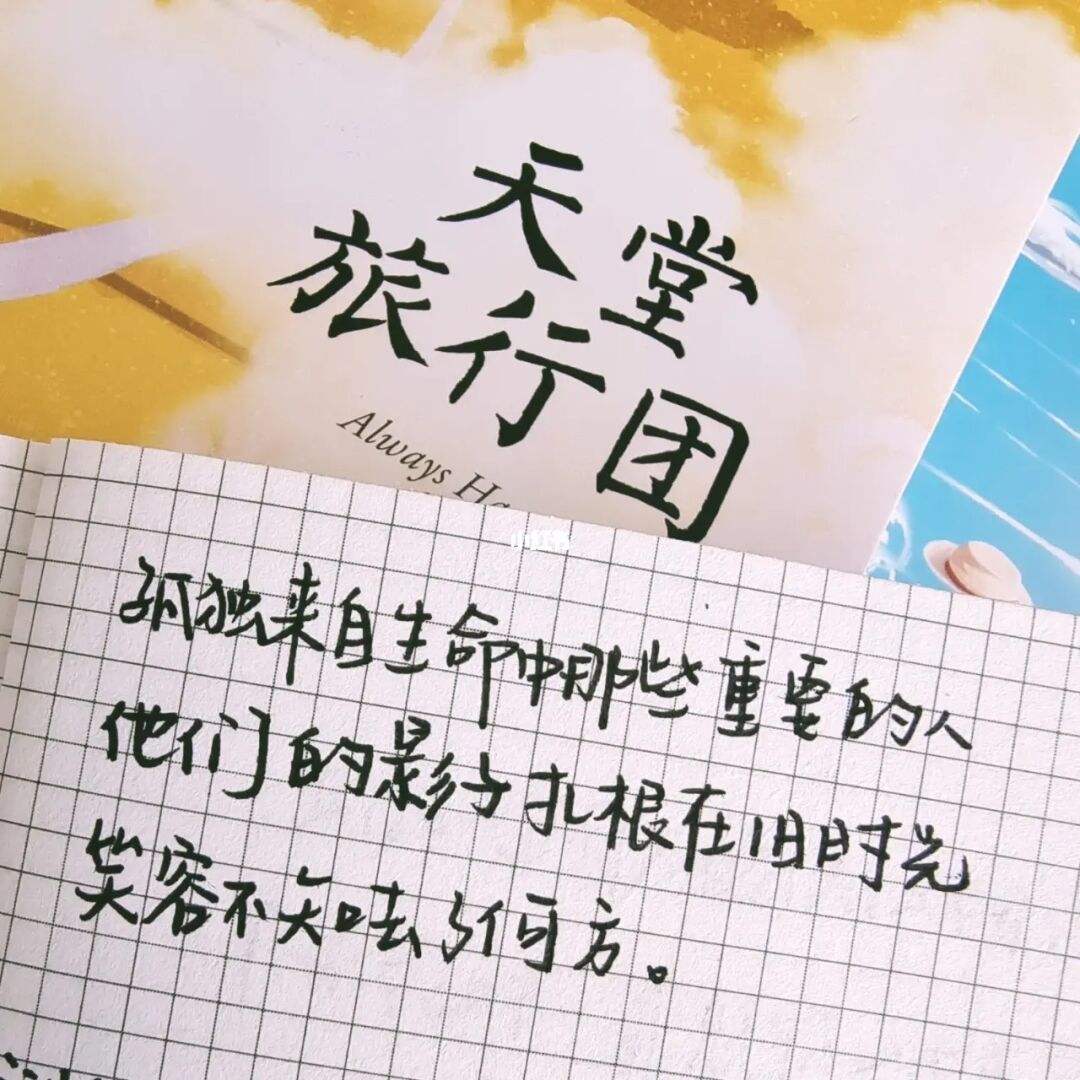 天堂
旅行团
Always Ha
小红书
孤独来自生命中那些重要的人
他们的影子扎根在旧时光
笑容不知去了何方。